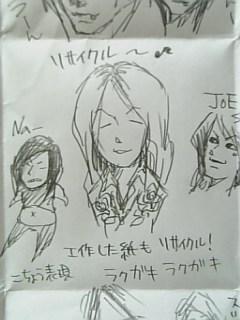 リサイクル〜♪
Na-
JOE
工作した紙も リサイクル!
こちょう表現
ラクガキ ラクガキ